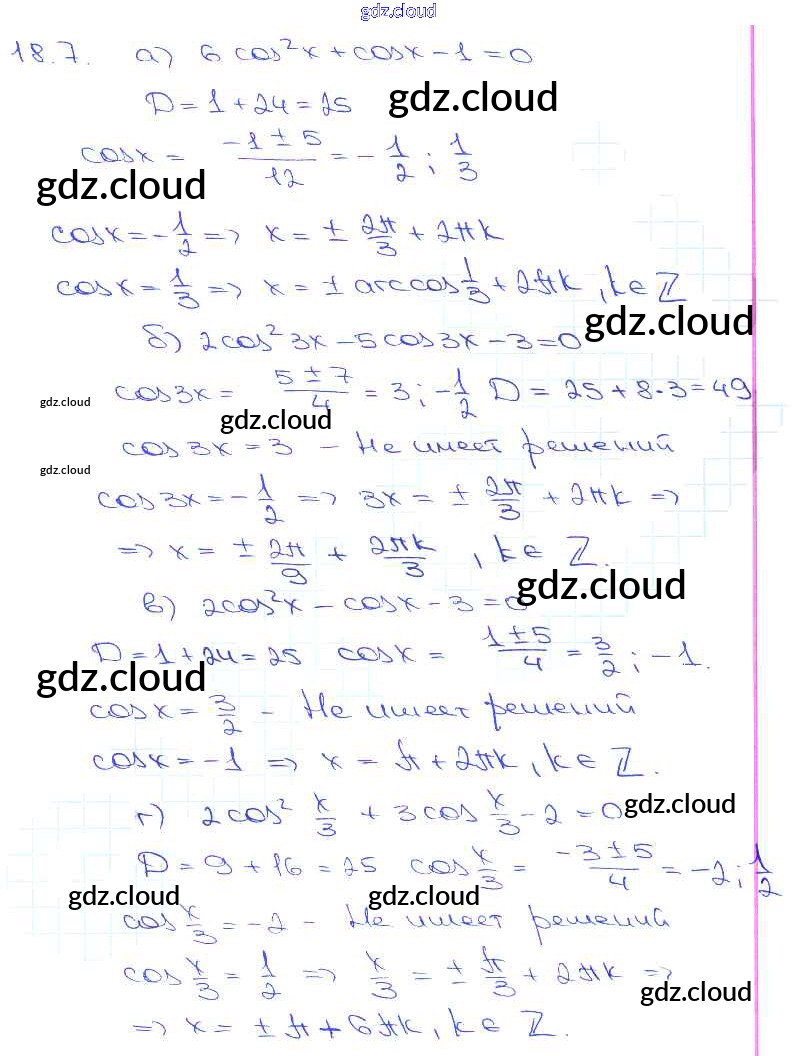 gdz.cloud
18.7. а) 6 cos²x + cosx - 1 = 0
D = 1 + 24 = 25 gdz.cloud
cosx = (-1 ± 5)/12 = -1/2 ; 1/3
gdz.cloud
cosx = -1/2 => x = ± 2π/3 + 2πk
cosx = 1/3 => x = ± arccos 1/3 + 2πk, k ∈ ℤ
gdz.cloud
б) 2cos²3x - 5cos3x - 3 = 0
cos3x = (5 ± 7)/4 = 3 ; -1/2 D = 25 + 8·3 = 49
gdz.cloud gdz.cloud
cos3x = 3 - Не имеет решений
gdz.cloud
cos3x = -1/2 => 3x = ± 2π/3 + 2πk =>
=> x = ± 2π/9 + 2πk/3, k ∈ ℤ.
gdz.cloud
в) 2cos²x - cosx - 3 = 0
D = 1 + 24 = 25 cosx = (1 ± 5)/4 = 3/2 ; -1.
gdz.cloud
cosx = 3/2 - Не имеет решений
cosx = -1 => x = π + 2πk, k ∈ ℤ.
г) 2cos² x/3 + 3cos x/3 - 2 = 0 gdz.cloud
D = 9 + 16 = 25 cos x/3 = (-3 ± 5)/4 = -2 ; 1/2
gdz.cloud gdz.cloud
cos x/3 = -2 - Не имеет решений
cos x/3 = 1/2 => x/3 = ± π/3 + 2πk =>
gdz.cloud
=> x = ± π + 6πk, k ∈ ℤ.